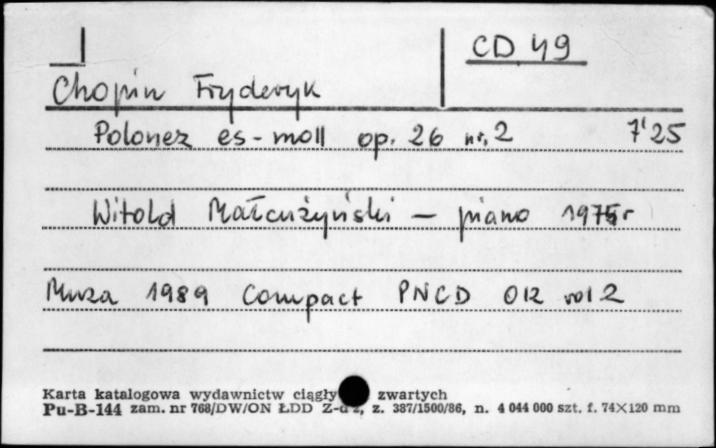 CD 49
Chopin Fryderyk
Polonez es-moll op. 26 nr. 2 7'25
Witold Małcużyński – piano 1975r
Muza 1989 Compact PNCD 012 vol 2
Karta katalogowa wydawnictw ciągły zwartych
Pu-B-144 zam. nr 768/DW/ON ŁDD z. 387/1500/86, n. 4 044 000 szt. f. 74×120 mm